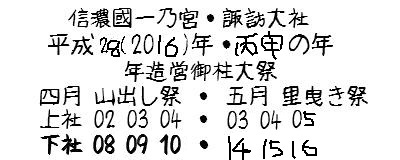 信濃國一乃宮・諏訪大社
平成28(2016)年・丙申の年
年造営御柱大祭
四月 山出し祭 • 五月 里曳き祭
上社 02 03 04 • 03 04 05
下社 08 09 10 • 14 15 16